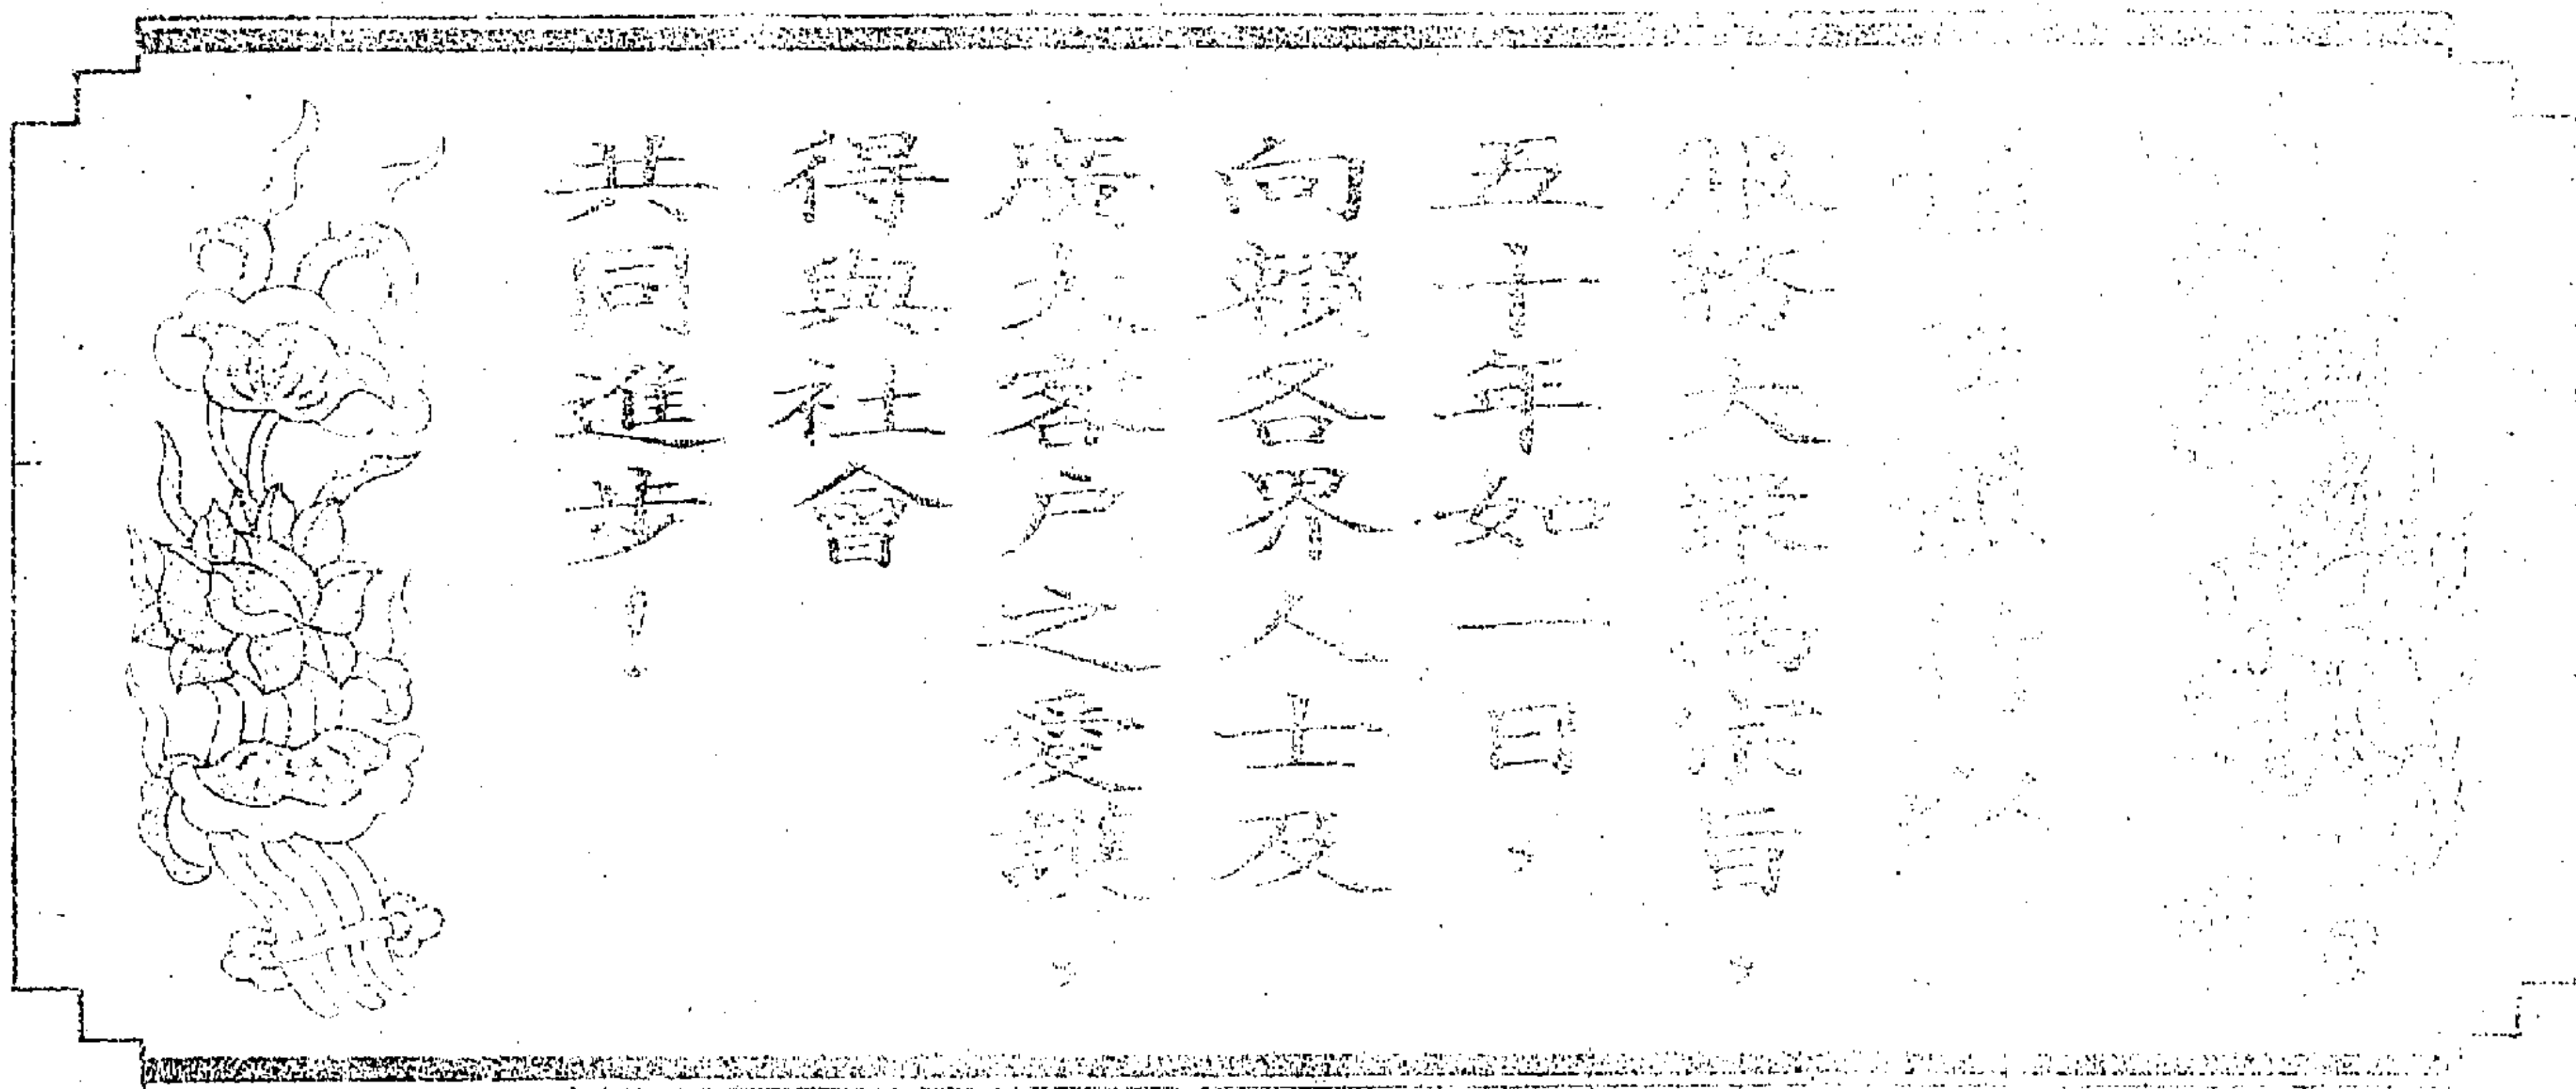 服務大眾為宗旨，
五十年如一日，
向賴各界人士及
廣大客戶之愛護，
得與社會
共同進步！